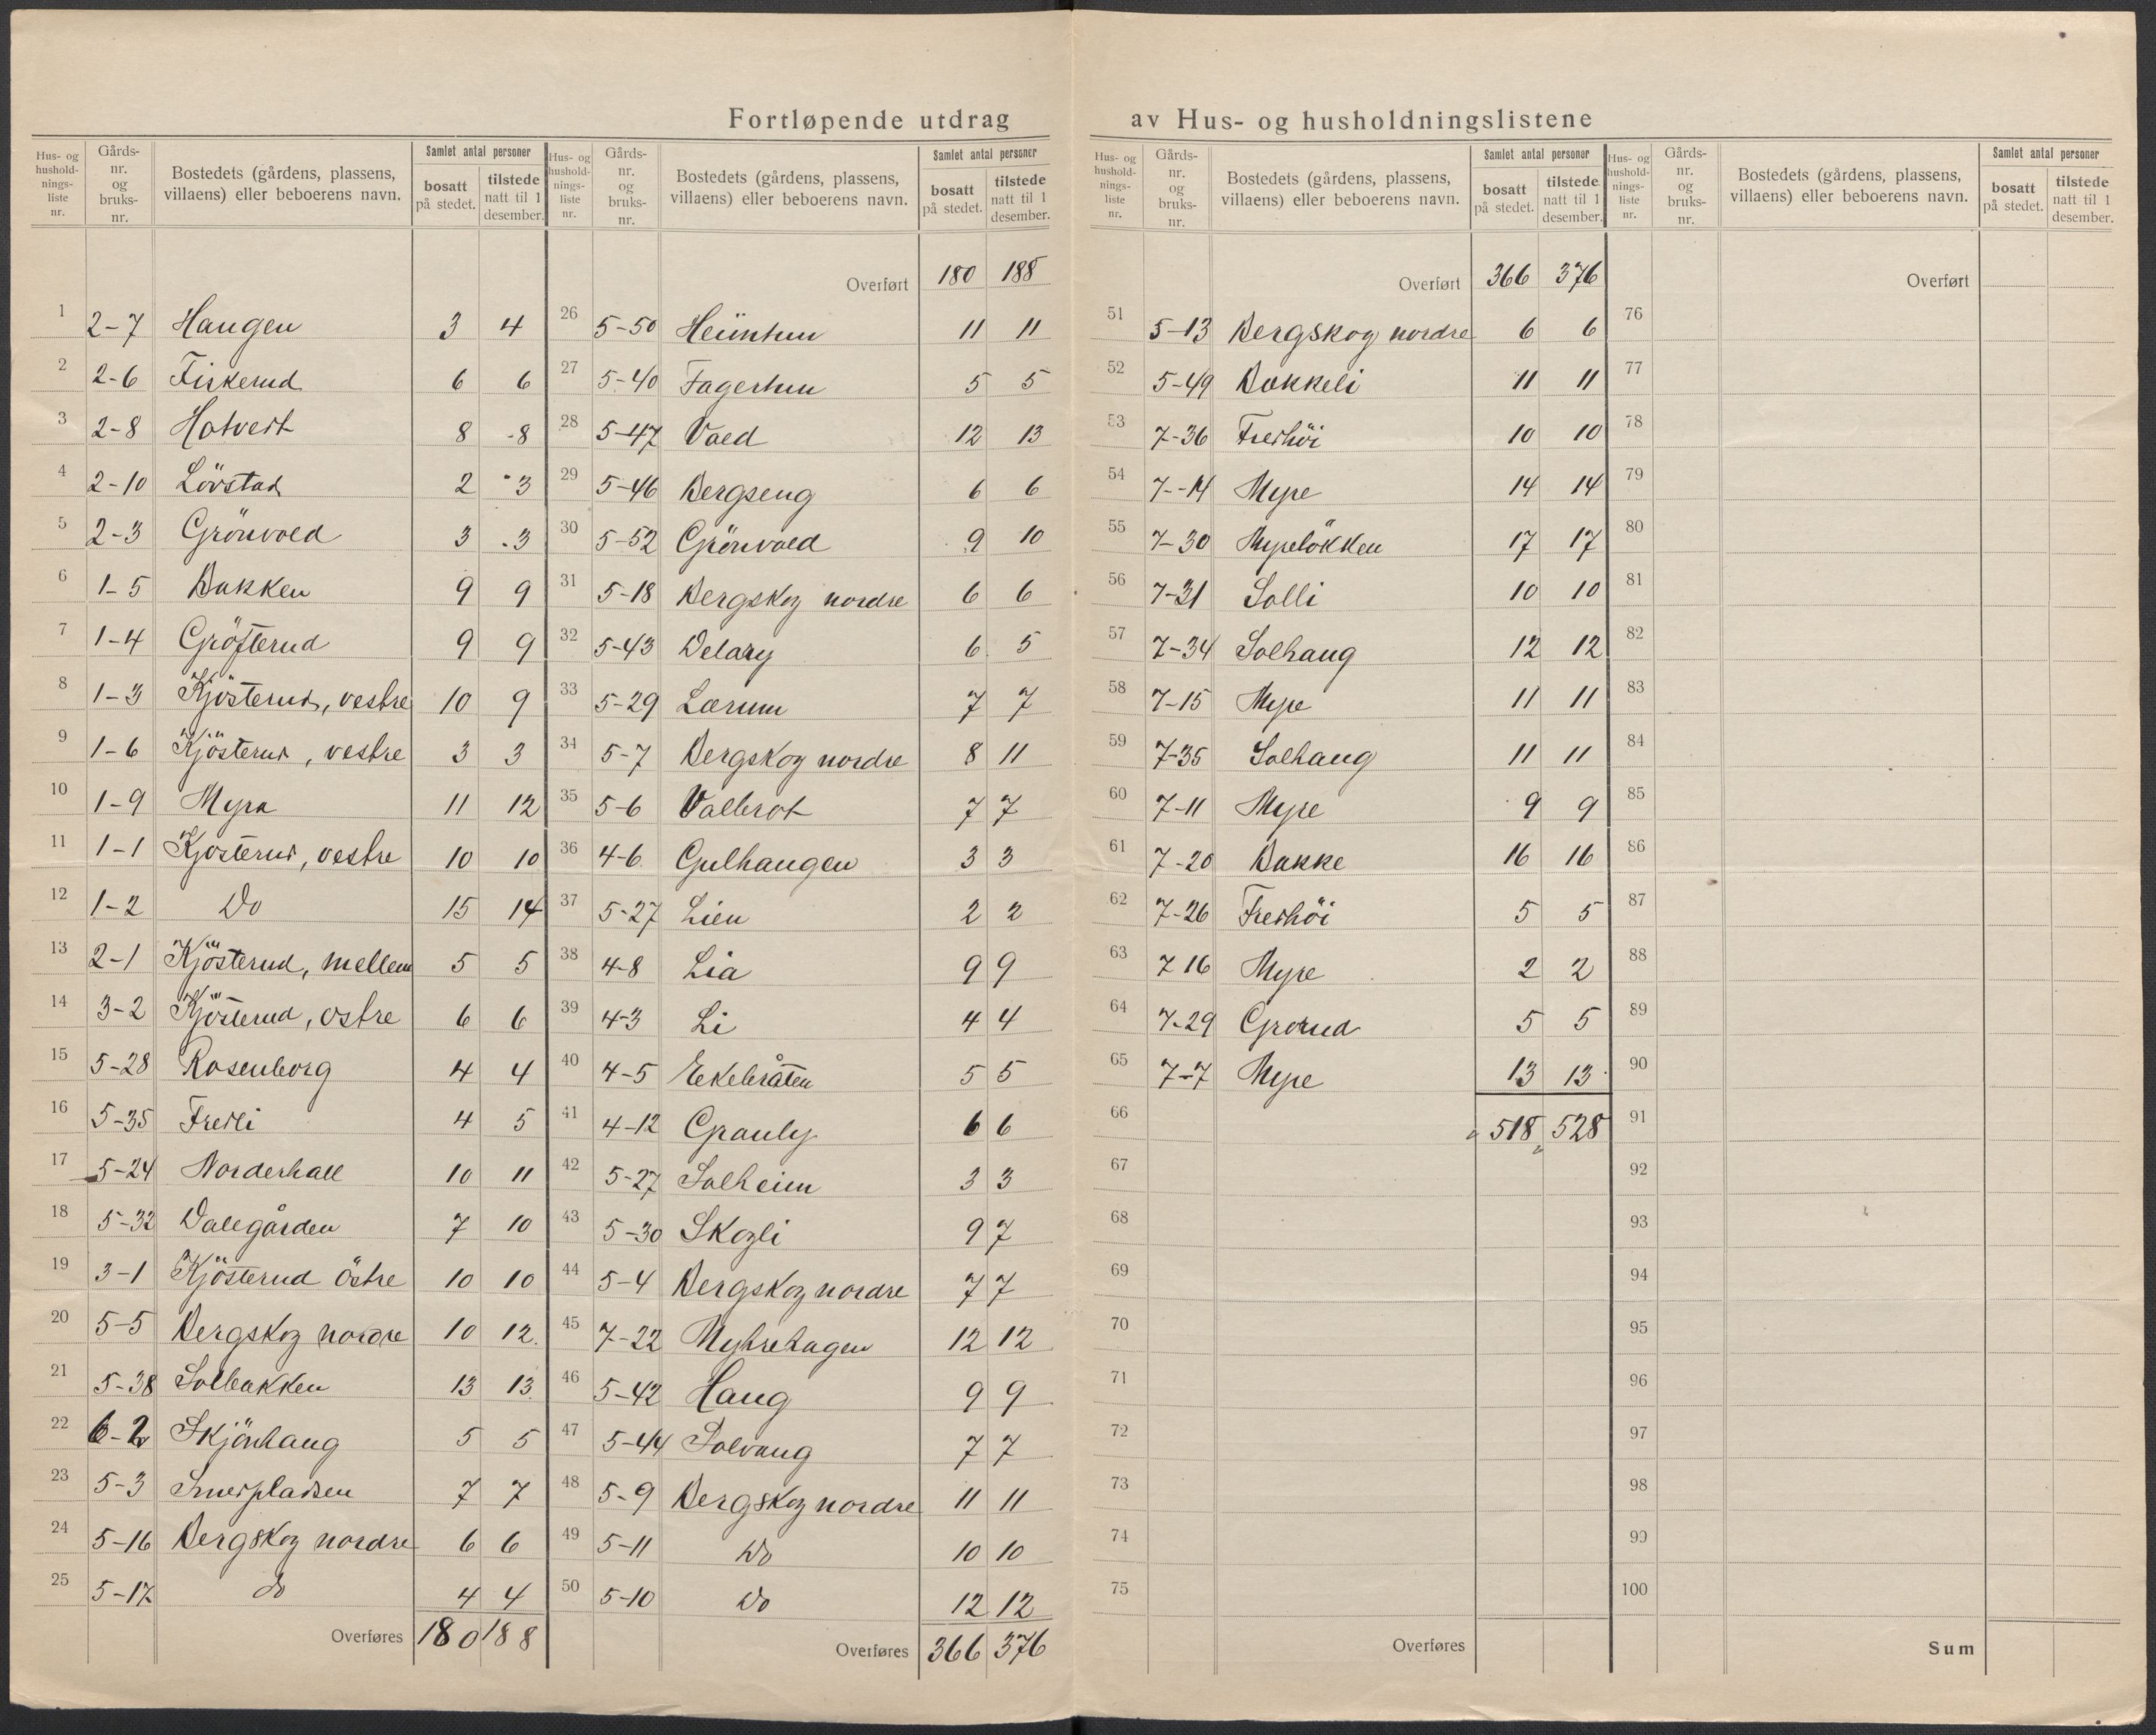 Fortløpende utdrag av Hus- og husholdningslistene
Hus- og hushold-nings-liste nr. | Gårds-nr. og bruks-nr. | Bostedets (gårdens, plassens, villaens) eller beboerens navn. | Samlet antal personer bosatt på stedet. | tilstede natt til 1 desember.
1 2-7 Haugen 3 4
2 2-6 Fiskerud 6 6
3 2-8 Hotvert 8 8
4 2-10 Lövstad 2 3
5 2-3 Grönvold 3 3
6 1-5 Bakken 9 9
7 1-4 Gröfterud 9 9
8 1-3 Kjösterud, vestre 10 9
9 1-6 Kjösterud, vestre 3 3
10 1-9 Myra 11 12
11 1-1 Kjösterud, vestre 10 10
12 1-2 Do 15 14
13 2-1 Kjösterud, mellem 5 5
14 3-2 Kjösterud, ostre 6 6
15 5-28 Rosenborg 4 4
16 5-35 Fredli 4 5
17 5-24 Norderhall 10 11
18 5-32 Dalegården 7 10
19 3-1 Kjösterud östre 10 10
20 5-5 Bergskog nordre 10 12
21 5-38 Solbakken 13 13
22 6-2 Skjönhaug 5 5
23 5-3 Smedpladsen 7 7
24 5-16 Bergskog nordre 6 6
25 5-17 do 4 4
Overføres 180 188
Hus- og hushold-nings-liste nr. | Gårds-nr. og bruks-nr. | Bostedets (gårdens, plassens, villaens) eller beboerens navn. | Samlet antal personer bosatt på stedet. | tilstede natt til 1 desember.
Overført 180 188
26 5-50 Heimtun 11 11
27 5-40 Fagertun 5 5
28 5-47 Vold 12 13
29 5-46 Bergseng 6 6
30 5-52 Grönvold 9 10
31 5-18 Bergskog nordre 6 6
32 5-43 Delary 6 5
33 5-29 Lærum 7 7
34 5-7 Bergskog nordre 8 11
35 5-6 Valbrot 7 7
36 4-6 Gulhaugen 3 3
37 5-27 Lien 2 2
38 4-8 Lia 9 9
39 4-3 Li 4 4
40 4-5 Ekebråten 5 5
41 4-12 Granly 6 6
42 5-27 Solheim 3 3
43 5-30 Skogli 9 7
44 5-4 Bergskog nordre 7 7
45 7-22 Myhrehagen 12 12
46 5-42 Haug 9 9
47 5-44 Solvang 7 7
48 5-9 Bergskog nordre 11 11
49 5-11 Do 10 10
50 5-10 Do 12 12
Overføres 366 376
Hus- og hushold-nings-liste nr. | Gårds-nr. og bruks-nr. | Bostedets (gårdens, plassens, villaens) eller beboerens navn. | Samlet antal personer bosatt på stedet. | tilstede natt til 1 desember.
Overført 366 376
51 5-13 Bergskog nordre 6 6
52 5-49 Bakkeli 11 11
53 7-36 Fredhöi 10 10
54 7-14 Myre 14 14
55 7-30 Myrelökken 17 17
56 7-31 Solli 10 10
57 7-34 Solhaug 12 12
58 7-15 Myre 11 11
59 7-35 Solhaug 11 11
60 7-11 Myre 9 9
61 7-20 Bakke 16 16
62 7-26 Fredhöi 5 5
63 7 16 Myre 2 2
64 7-29 Grorud 5 5
65 7-7 Myre 13 13
66 518 528
67
68
69
70
71
72
73
74
75
Overføres
Hus- og hushold-nings-liste nr. | Gårds-nr. og bruks-nr. | Bostedets (gårdens, plassens, villaens) eller beboerens navn. | Samlet antal personer bosatt på stedet. | tilstede natt til 1 desember.
Overført
76
77
78
79
80
81
82
83
84
85
86
87
88
89
90
91
92
93
94
95
96
97
98
99
100
Sum